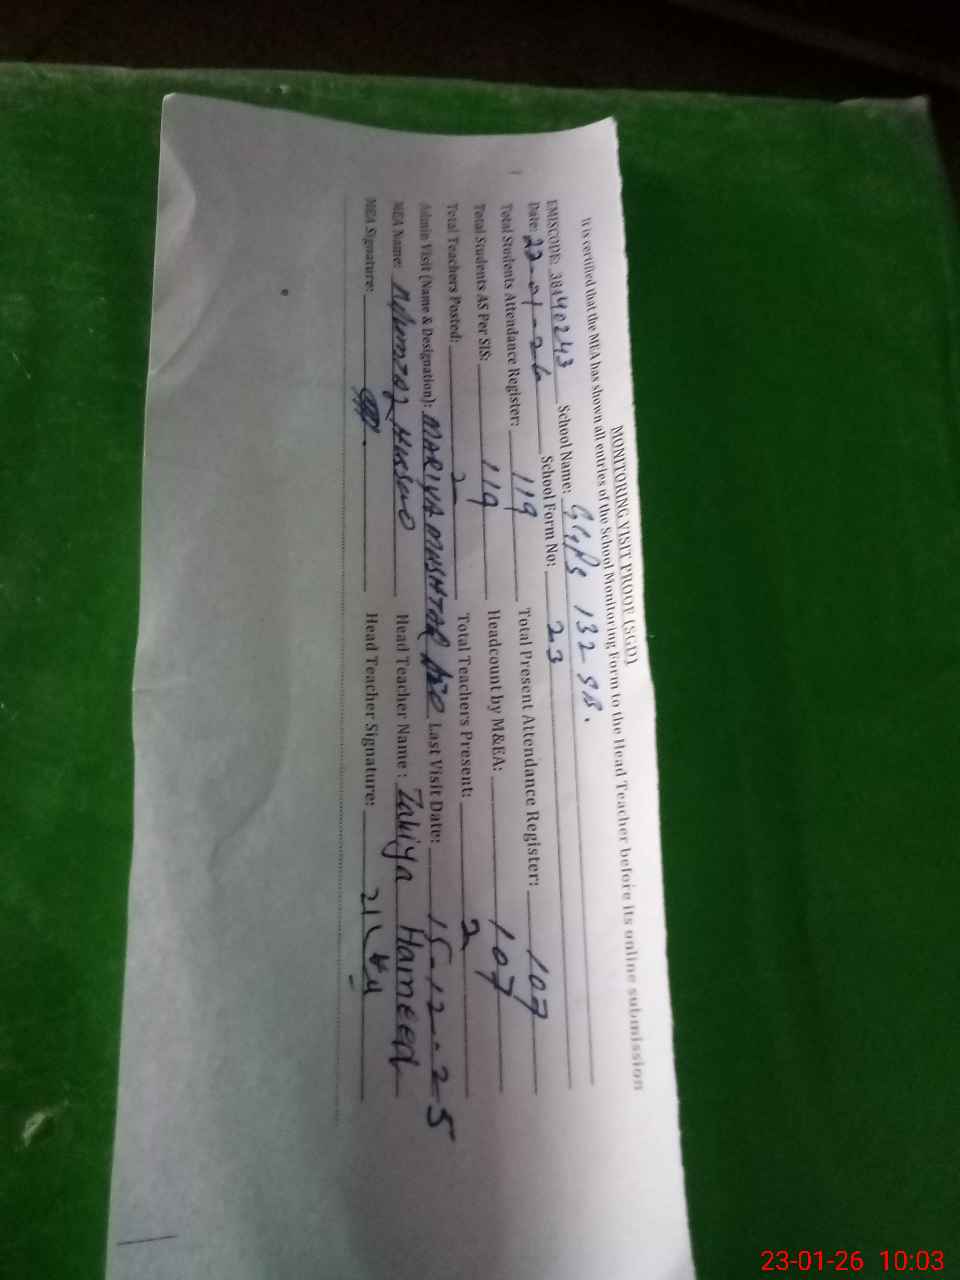 MONITORING VISIT PROOF (SGD)
It is certified that the MEA has shown all entries of the School Monitoring Form to the Head Teacher before its online submission
EMISCODE: 38140243 School Name: GGPS 132 SB.
Date: 23-01-26 School Form No: 23
Total Students Attendance Register: 119 Total Present Attendance Register: 107
Total Students AS Per SIS: 119 Headcount by M&EA: 107
Total Teachers Posted: 2 Total Teachers Present: 2
Admin Visit (Name & Designation): MARIYA MUSHTAQ AEO Last Visit Date: 15-12-25
MEA Name: Head Teacher Name: Zakiya Hameed
MEA Signature: Head Teacher Signature:
23-01-26 10:03